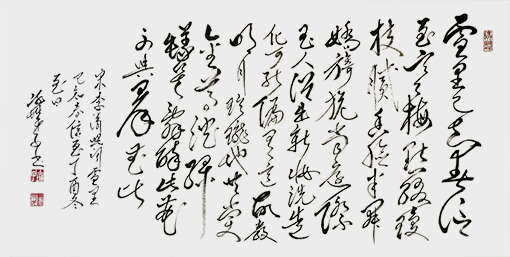 雪里已知春信
至寒梅点缀琼
枝腻香脸半开
娇旖旎当庭际
玉人浴出新妆洗造
化可能偏有意故教
明月玲珑地共赏
金尊沉绿
蚁莫辞醉此花
不与群花比
宋李清照词雪里
已知春信至丁酉冬
至日